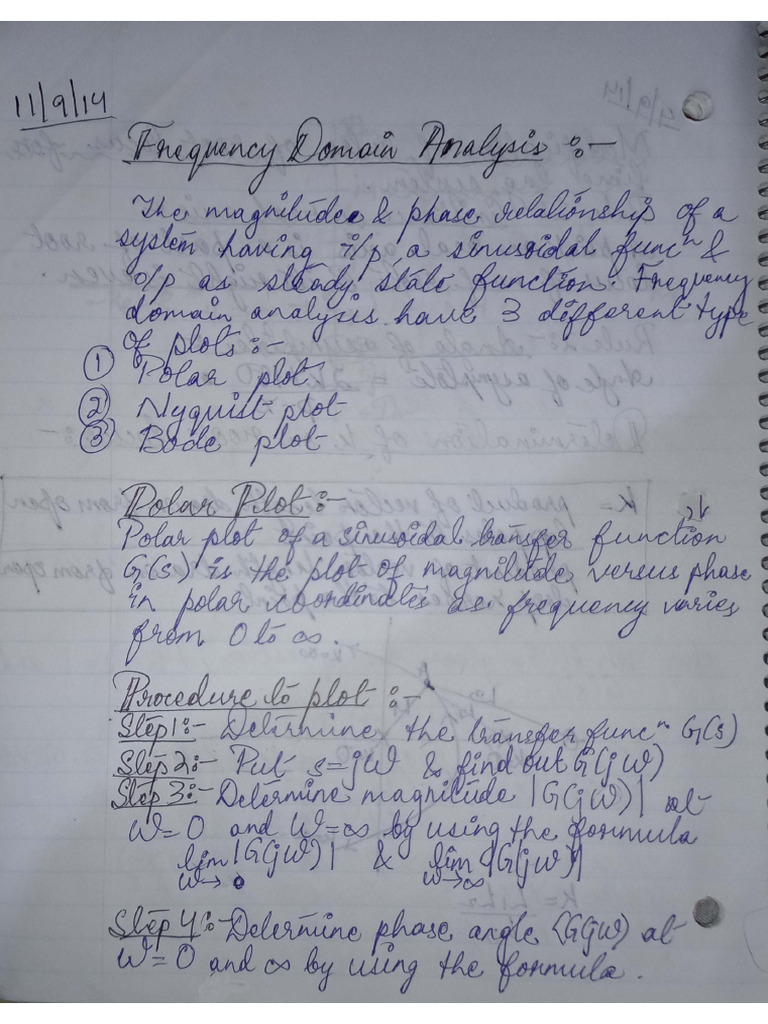 11/9/14
Frequency Domain Analysis :-
The magnitude & phase relationship of a
system having i/p a sinusoidal funcⁿ &
o/p as steady state function. Frequency
domain analysis have 3 different type
of plots :-
① Polar plot
② Nyquist plot
③ Bode plot
Polar Plot :-
Polar plot of a sinusoidal transfer function
G(s) is the plot of magnitude versus phase
in polar coordinates as frequency varies
from 0 to ∞.
Procedure to plot :-
Step 1:- Determine the transfer funcⁿ G(s)
Step 2:- Put s=jω & find out G(jω)
Step 3:- Determine magnitude |G(jω)| at
ω=0 and ω=∞ by using the formula
lim |G(jω)| & lim |G(jω)|
ω→0 ω→∞
Step 4:- Determine phase angle ∠G(jω) at
ω=0 and ∞ by using the formula.